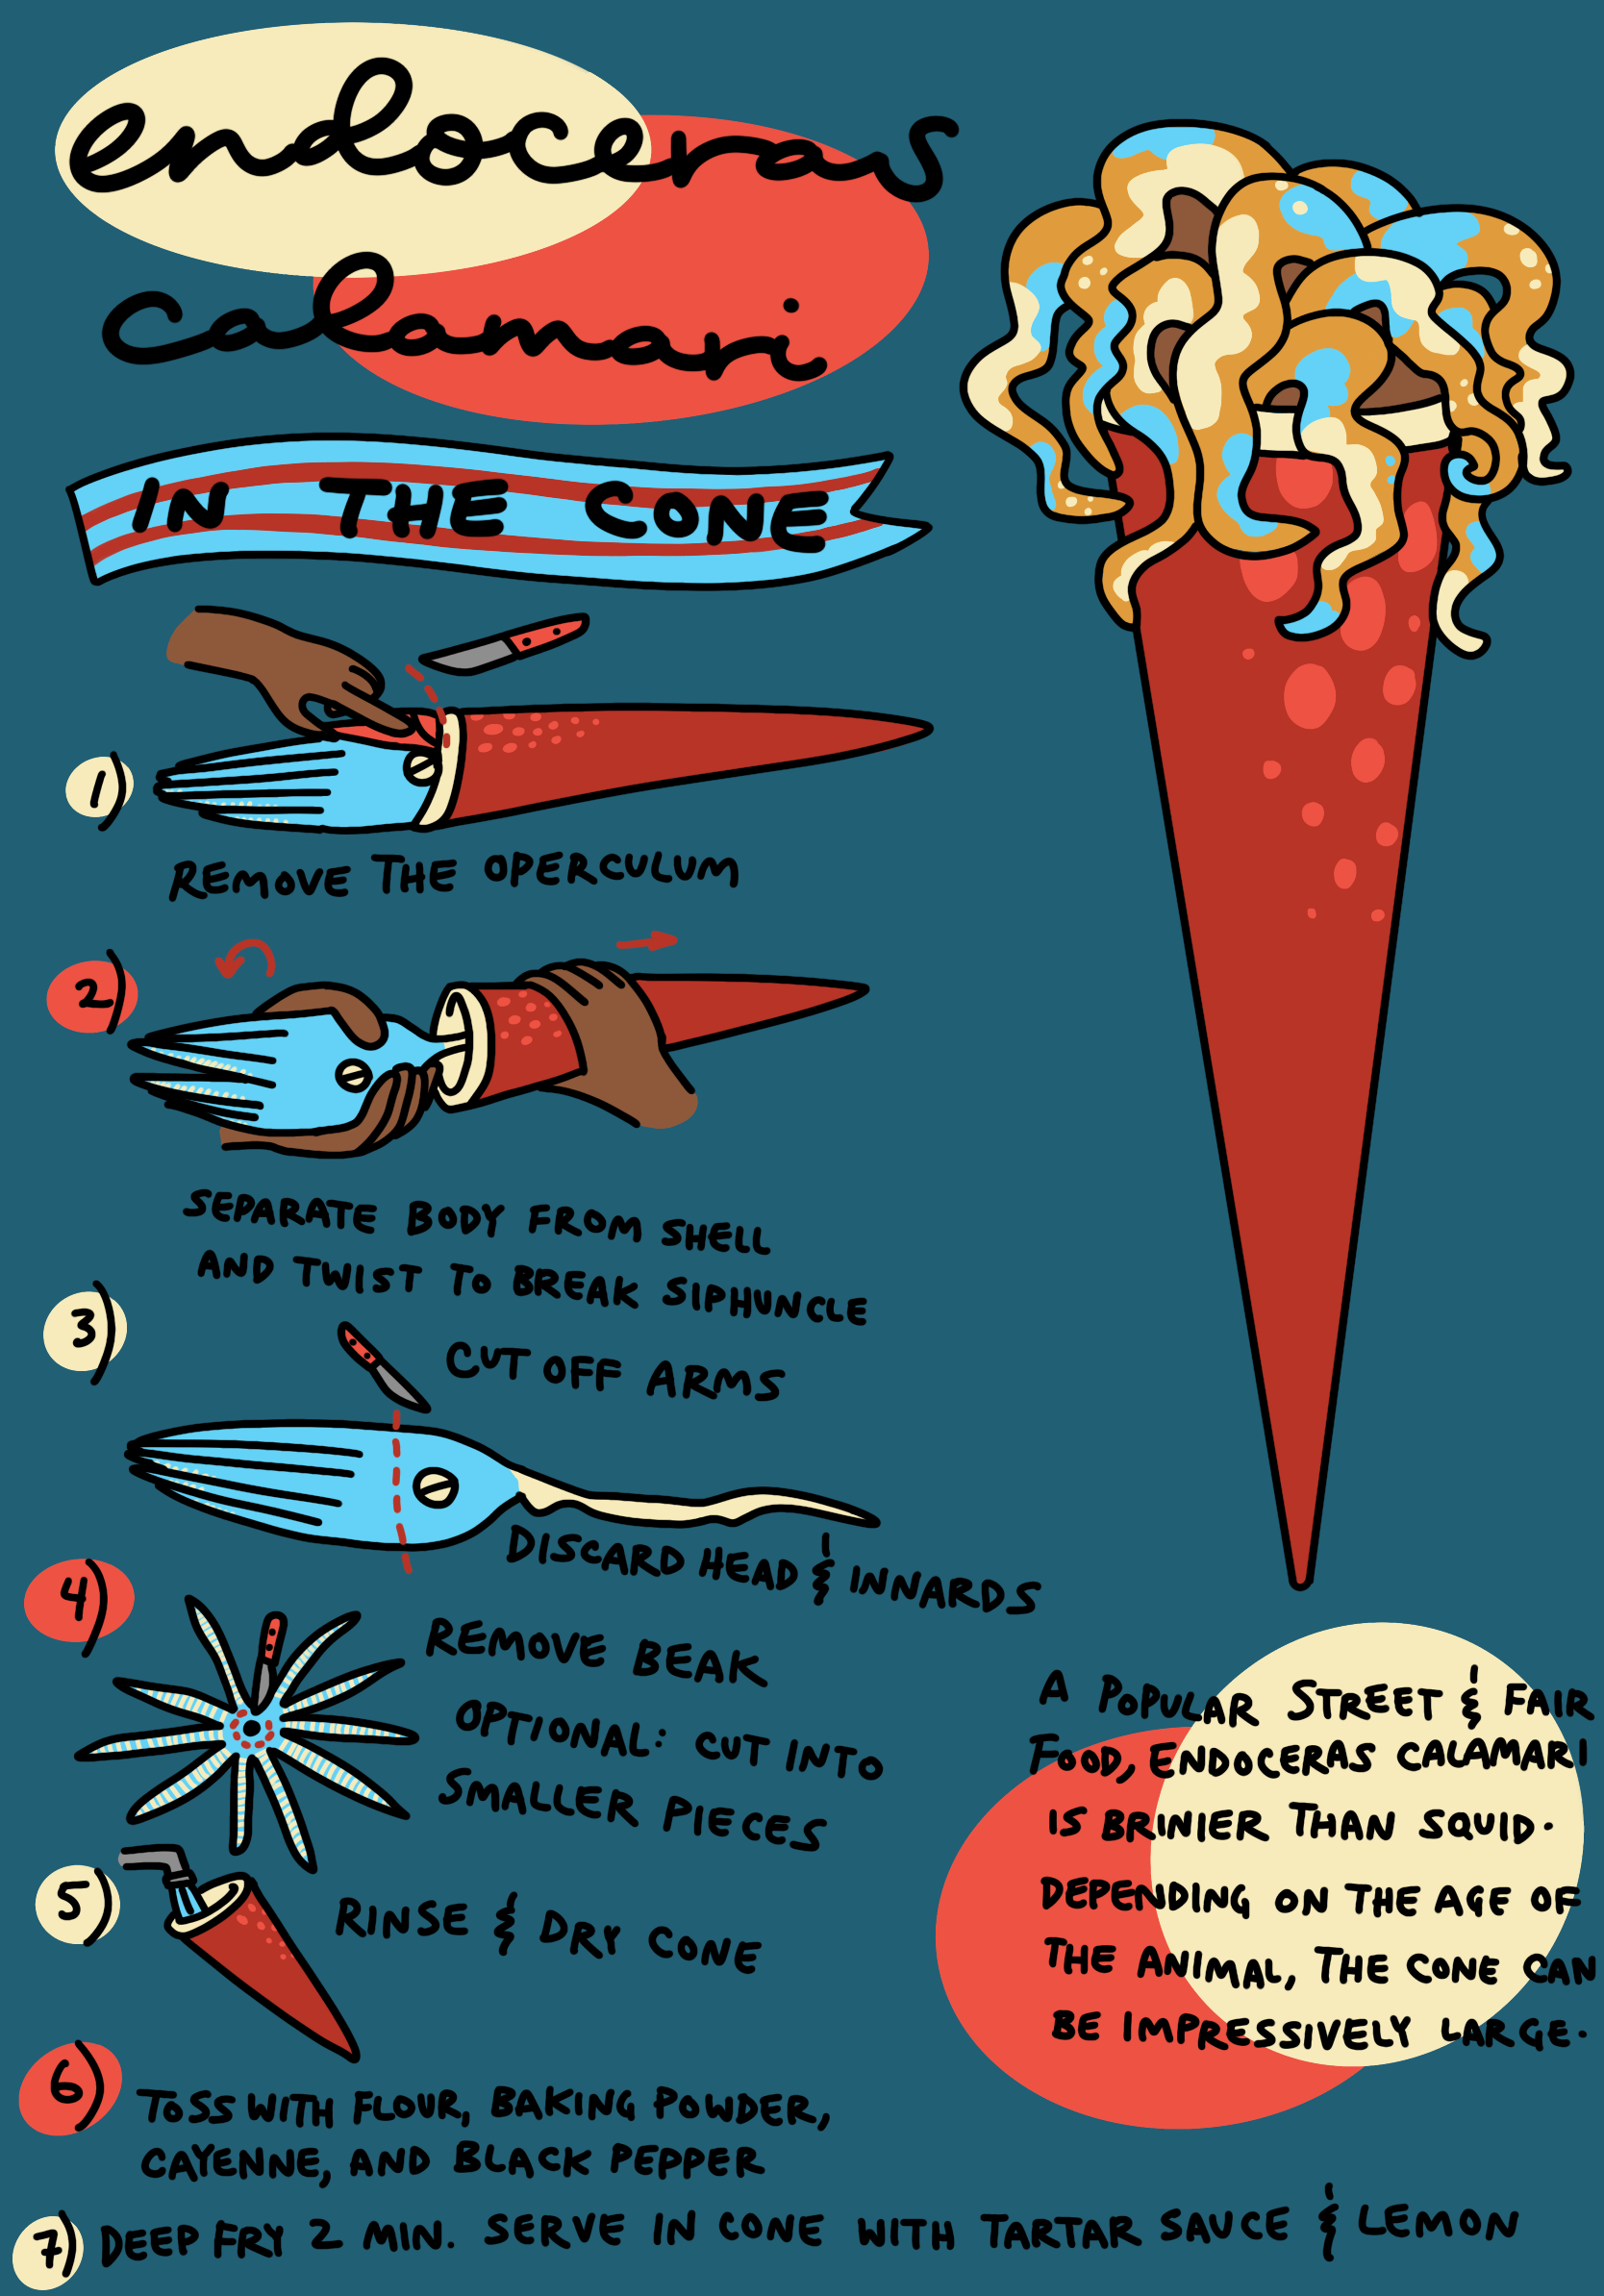 endoceras
calamari
IN THE CONE
1)
REMOVE THE OPERCULUM
2)
SEPARATE BODY FROM SHELL
AND TWIST TO BREAK SIPHUNCLE
3)
CUT OFF ARMS
DISCARD HEAD & INNARDS
4)
REMOVE BEAK
OPTIONAL: CUT INTO
SMALLER PIECES
5)
RINSE & DRY CONE
6)
TOSS WITH FLOUR, BAKING POWDER,
CAYENNE, AND BLACK PEPPER
7) DEEP FRY 2 MIN. SERVE IN CONE WITH TARTAR SAUCE & LEMON
A POPULAR STREET & FAIR
FOOD, ENDOCERAS CALAMARI
IS BRINIER THAN SQUID.
DEPENDING ON THE AGE OF
THE ANIMAL, THE CONE CAN
BE IMPRESSIVELY LARGE.